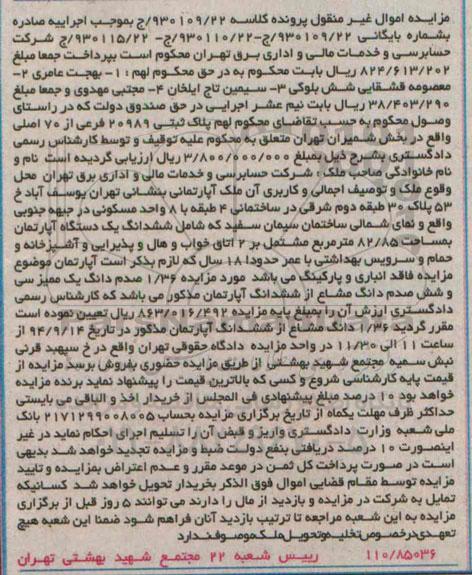 مزایده اموال غیر منقول پرونده کلاسه ۹۳۰۱۰۹/۲۲/ج بموجب اجراییه صادره
بشماره بایگانی ۹۳۰۱۰۹/۲۲/ج-۹۳۰۱۱۰/۲۲/ج- ۹۳۰۱۱۵/۲۲/ج شرکت
حسابرسی و خدمات مالی و اداری برق تهران محکوم است بپرداخت جمعا مبلغ
۸۲۴/۶۱۳/۲۰۲ ریال بابت محکوم به در حق محکوم لهم ۱- بهجت عامری ۲-
معصومه قشقایی شش بلوکی ۳- سیمین تاج ایلخان ۴- مجتبی مهدوی و جمعا مبلغ
۳۸/۴۰۳/۲۹۰ ریال بابت نیم عشر اجرایی در حق صندوق دولت که در راستای
وصول محکوم به حسب تقاضای محکوم لهم پلاک ثبتی ۲۰۹۸۹ فرعی از ۷۰ اصلی
واقع در بخش شمیران تهران متعلق به محکوم علیه توقیف و توسط کارشناس رسمی
دادگستری بشرح ذیل بمبلغ ۳/۸۰۰/۰۰۰/۰۰۰ ریال ارزیابی گردیده است نام و
نام خانوادگی صاحب ملک : شرکت حسابرسی و خدمات مالی و اداری برق تهران محل
وقوع ملک و توصیف اجمالی و کاربری آن ملک آپارتمانی بنشانی تهران یوسف آباد خ
۵۳ پلاک ۳۰ طبقه دوم شرقی در ساختمانی ۴ طبقه با ۸ واحد مسکونی در جبهه جنوبی
واقع و نمای شمالی ساختمان سیمان سفید که شامل ششدانگ یک دستگاه آپارتمان
بمساحت ۸۲/۸۵ مترمربع مشتمل بر ۲ اتاق خواب و هال و پذیرایی و آشپزخانه و
حمام و سرویس بهداشتی با عمر حدودا ۱۸ سال که لازم بذکر است آپارتمان موضوع
مزایده فاقد انباری و پارکینگ می باشد مورد مزایده ۱/۳۶ صدم دانگ یک ممیز سی
و شش صدم دانگ مشاع از ششدانگ آپارتمان مذکور می باشد که کارشناس رسمی
دادگستری ارزش آن را بمبلغ پایه مزایده ۸۶۳/۰۱۶/۴۹۲ ریال تعیین نموده است
مقرر گردید ۱/۳۶ دانگ مشاع از ششدانگ آپارتمان مذکور در تاریخ ۹۴/۹/۱۴ از
ساعت ۱۱ الی ۱۱/۳۰ در واحد مزایده دادگاه حقوقی تهران واقع در خ سپهبد قرنی
نبش سمیه مجتمع شهید بهشتی از طریق مزایده حضوری بفروش برسد مزایده از
قیمت پایه کارشناسی شروع و کسی که بالاترین قیمت را پیشنهاد نماید برنده مزایده
خواهد بود ۱۰ درصد مبلغ پیشنهادی فی المجلس از خریدار اخذ و الباقی می بایستی
حداکثر ظرف مهلت یکماه از تاریخ برگزاری مزایده بحساب ۲۱۷۱۲۹۹۰۰۸۰۰۵ بانک
ملی شعبه وزارت دادگستری واریز و قبض آن را تسلیم اجرای احکام نماید در غیر
اینصورت ۱۰ درصد دریافتی بنفع دولت ضبط و مزایده تجدید خواهد شد بدیهی
است در صورت پرداخت کل ثمن در موعد مقرر و عدم اعتراض بمزایده و تایید
مزایده توسط مقام قضایی اموال فوق الذکر بخریدار تحویل خواهد شد کسانیکه
تمایل به شرکت در مزایده و بازدید از مال را دارند می توانند ۵ روز قبل از برگزاری
مزایده به این شعبه مراجعه تا ترتیب بازدید آنان فراهم شود ضمنا این شعبه هیچ
تعهدی در خصوص تخلیه و تحویل ملک موصوف ندارد
۱۱۰/۸۵۰۳۶ رییس شعبه ۲۲ مجتمع شهید بهشتی تهران